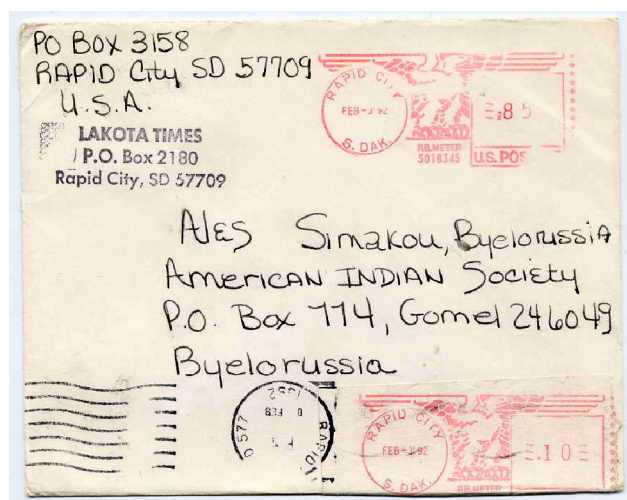 PO Box 3158
RAPID City SD 57709
U.S.A.
LAKOTA TIMES
P.O. Box 2180
Rapid City, SD 57709
RAPID CITY
FEB -3'92
S. DAK.
.85
P.B. METER
5018345
U.S. POS
Ales Simakou, Byelorussia
American INDIAN Society
P.O. Box 774, Gomel 246049
Byelorussia
RAPID
FEB
1992
577
RAPID CITY
FEB -3'92
S. DAK.
.10
P.B. METER